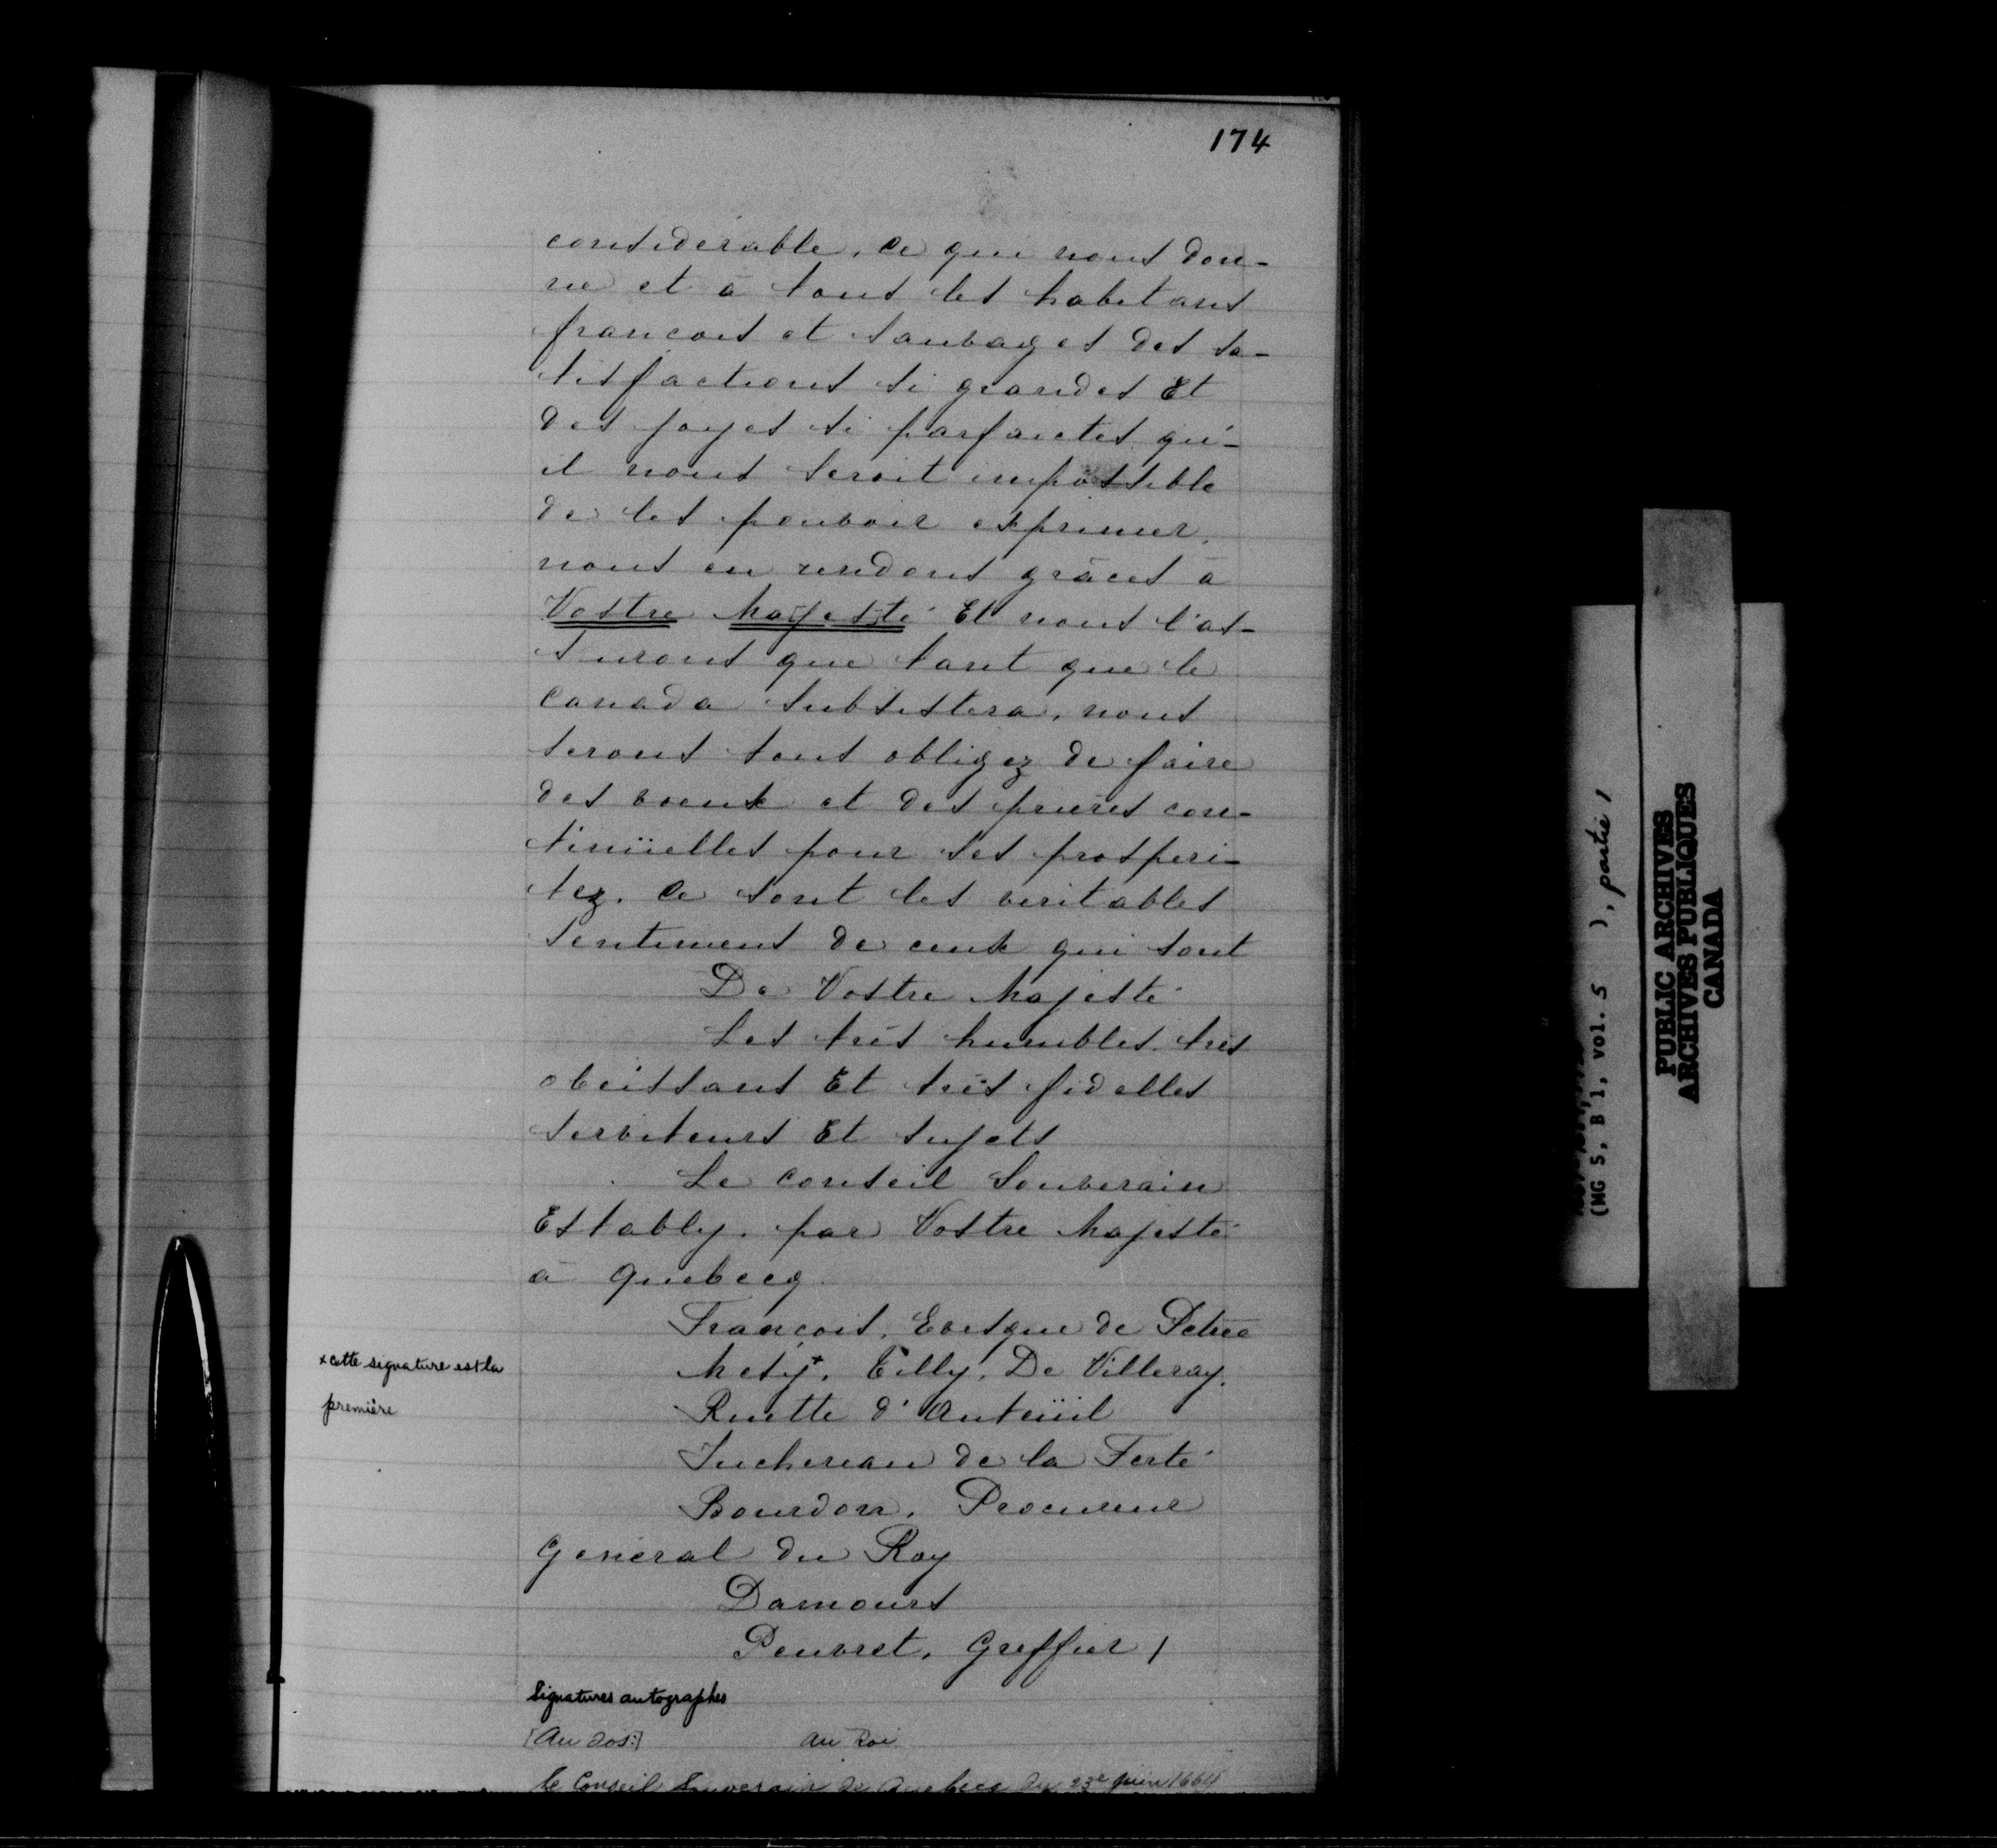 174
considerable, Ce qui nous don-
ne et à tous les habitans
francois et sauvages des sa-
tisfactions si grandes Et
des joyes si parfaictes qu'-
il nous seroit impossible
de les pouvoir exprimer,
nous en rendons grâces à
Vostre Majesté Et nous l'as-
surons que tant que le
Canada subsistera, nous
serons tous obligez de faire
des voeux et des prières con-
tinüelles pour ses prosperi-
tez. Ce sont les veritables
sentimens de ceux qui sont
De Vostre Majesté
Les très humbles, très
obeissans Et très fidelles
serviteurs Et sujets
Le Conseil Souverain
Estably par Vostre Majesté
à Quebecq.
François, Evesque de Petrée
x cette signature est la
première
Mesy x, Tilly, De Villeray,
Ruette d'Auteüil
Juchereau de la Ferté
Bourdon, Procureur
General du Roy
Damours
Peuvret, Greffier /
Signatures autographes
[Au dos:] Au Roi
le Conseil Souverain de Quebecq du 23e juin 1664
(MG 5, B 1, vol. 5 ), partie 1
PUBLIC ARCHIVES
ARCHIVES PUBLIQUES
CANADA